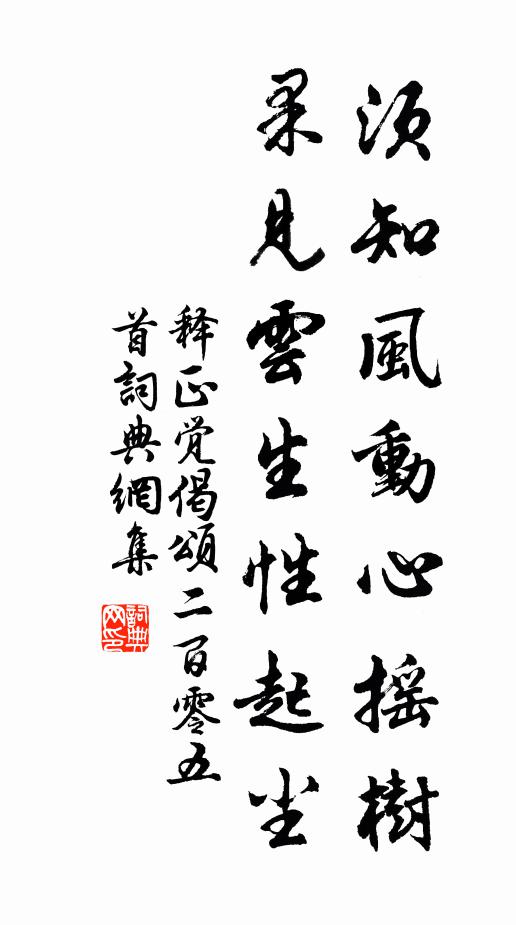 須知風動心揺樹
果見雲生性起尘
释正觉偈頌二百零五
首詞典網集
詞典網印